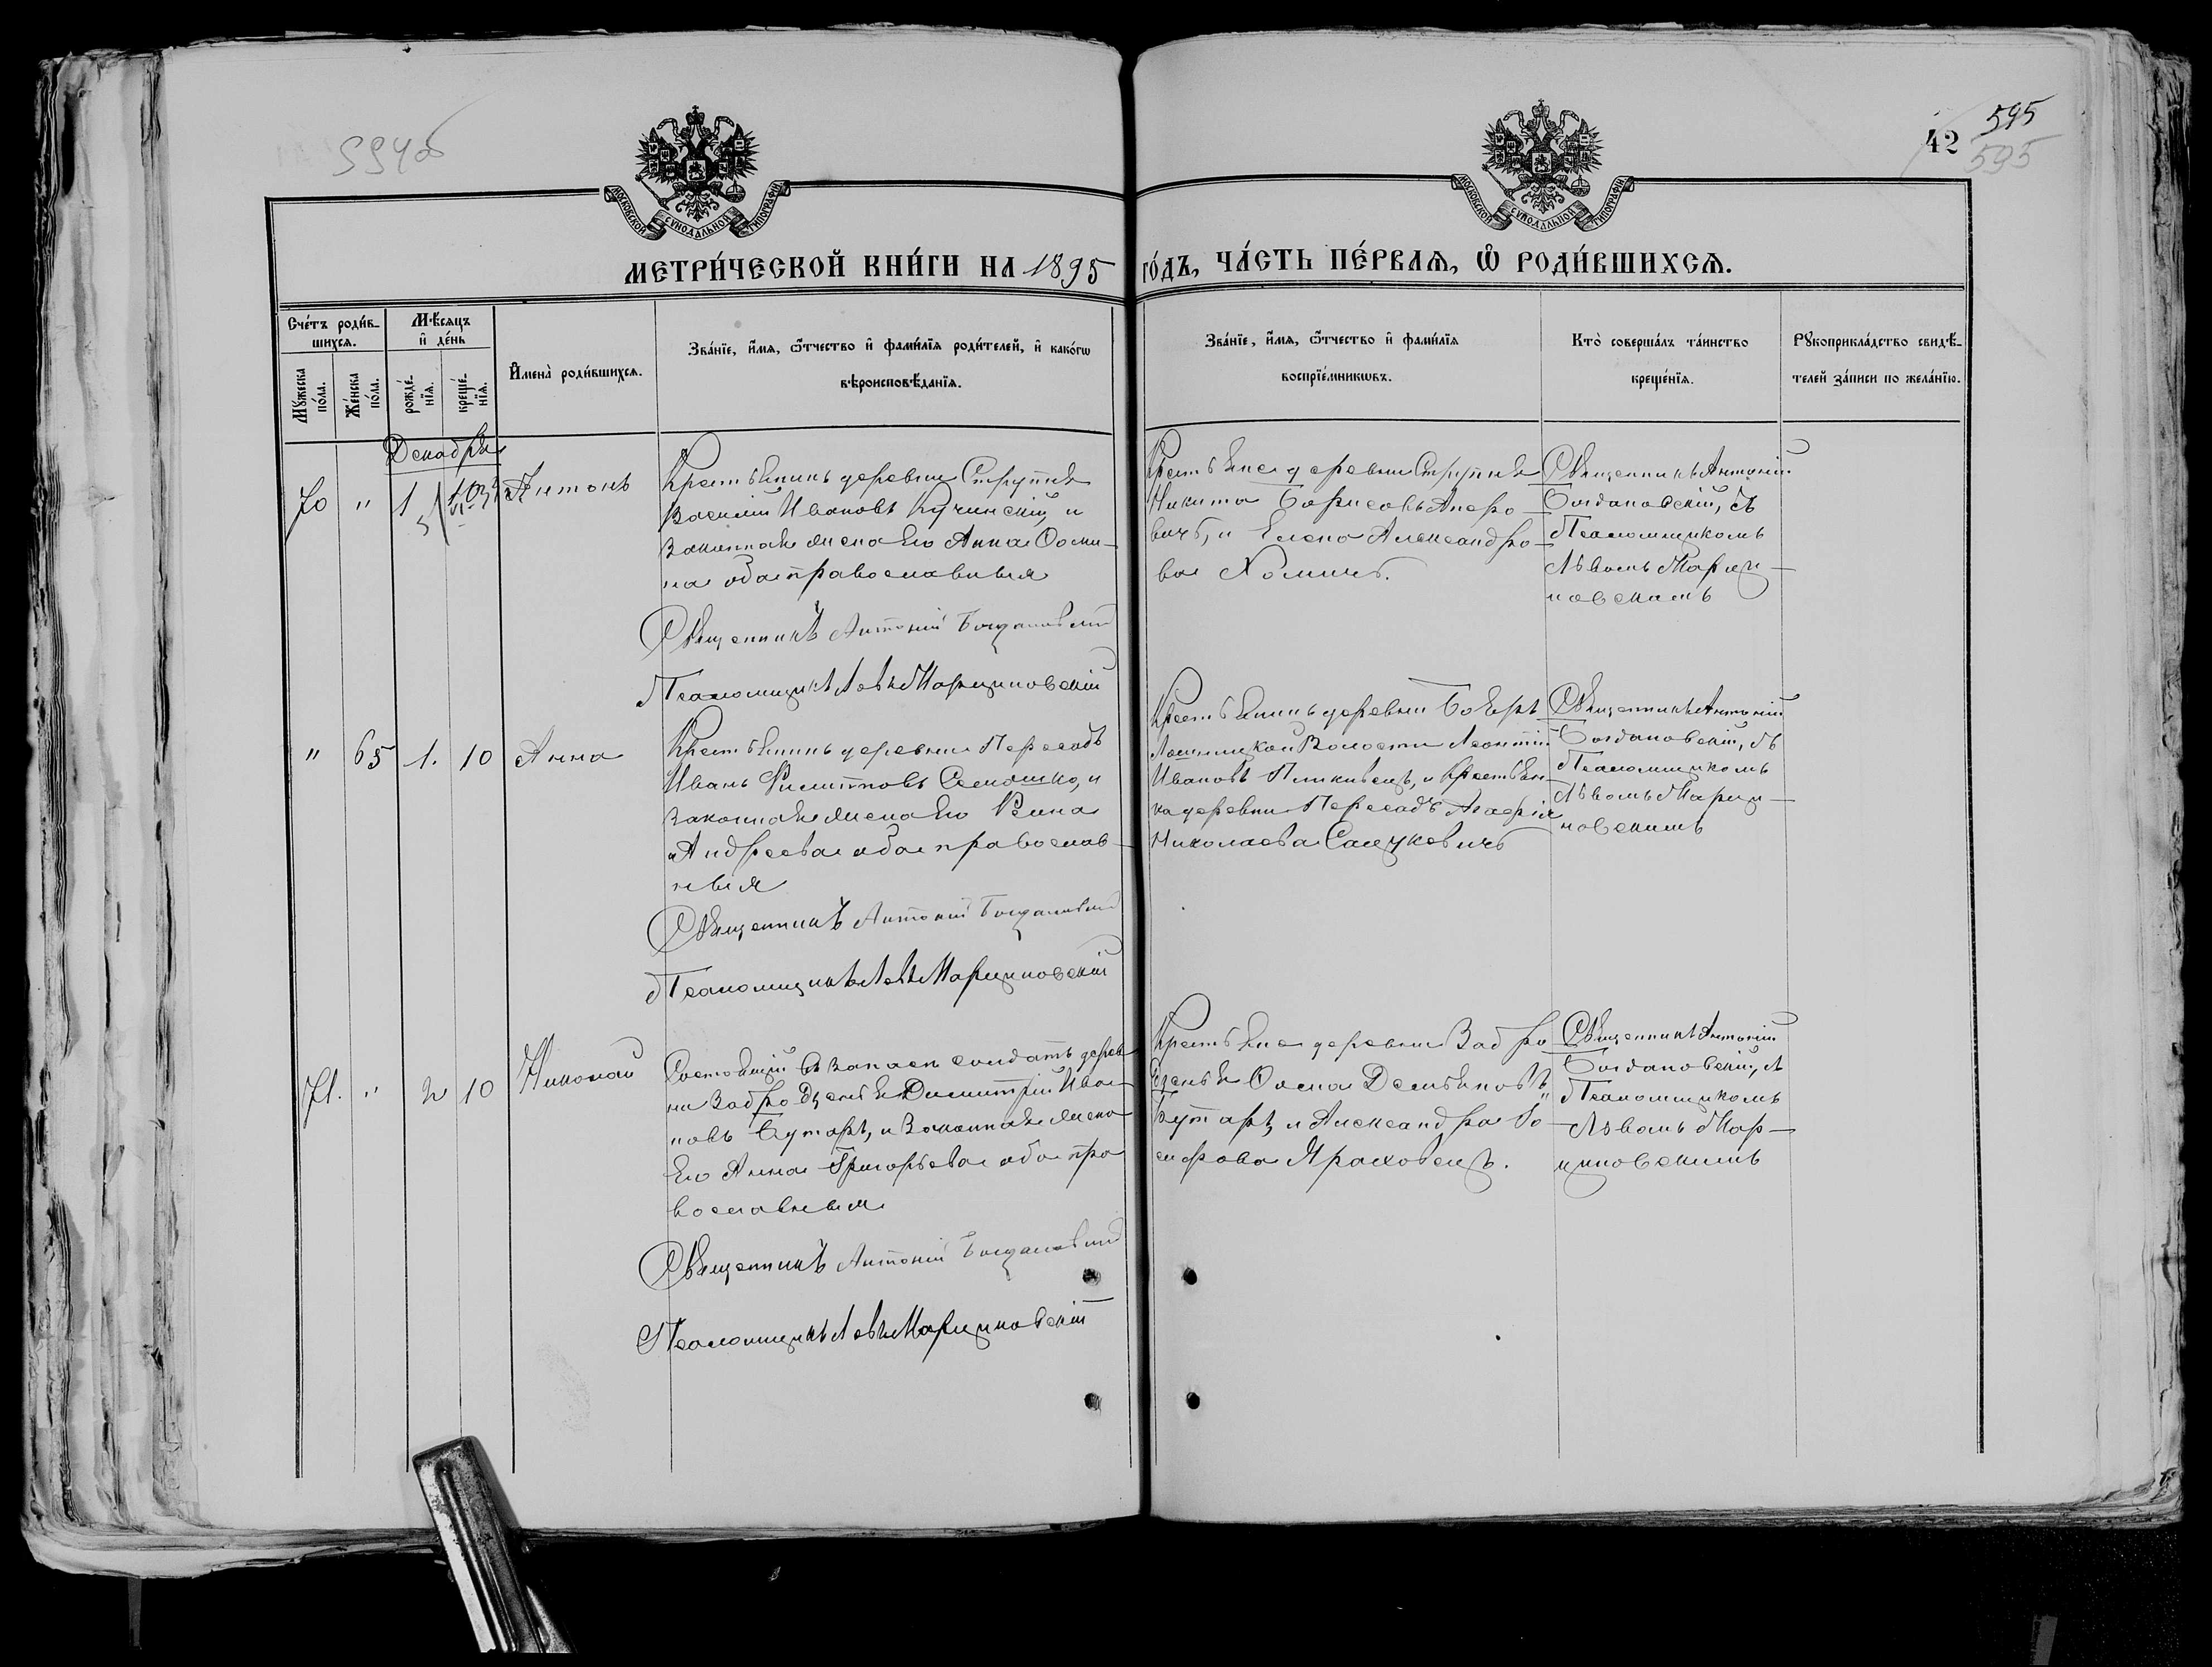 594об
595
42
595
МОСКОВСКОЙ СѴНОДАЛЬНОЙ ТИПОГРАФІИ
МОСКОВСКОЙ СѴНОДАЛЬНОЙ ТИПОГРАФІИ
МЕТРИ́ЧЕСКОЙ КНИ́ГИ НА 1895 ГО́ДЪ, ЧА́СТЬ ПЕ́РВАѦ, Ѽ РОДИ́ВШИХСѦ.
Сче́тъ роди́в-
шихсѧ.
Мѣ́сѧцъ
и҆ де́нь
Мꙋ́жеска
по́ла.
Же́нска
по́ла.
рожде́-
нїѧ.
креще́-
нїѧ.
И҆мена̀ роди́вшихсѧ.
Зва́нїе, и҆́мѧ, ѻ҆́тчество и҆ фами́лїѧ роди́телей, и҆ како́гѡ
вѣроисповѣ́данїѧ.
Зва́нїе, и҆́мѧ, ѻ҆́тчество и҆ фами́лїѧ
воспрїе́мникѡвъ.
Кто̀ соверша́лъ та́инство
креще́нїѧ.
Рꙋкоприкла́дство свидѣ́-
телей за́писи по жела́нїю.
Декабря
70 " 1 Антонъ
Крестьянинъ деревни Струпня
Василій Ивановъ Кучинскій, и
законная жена его Анна Ѳоми-
на оба православныя
Священникъ Антоній Богдановскій
Псаломщикъ Левъ Марциновскій
Крестьяне деревни Струпня
Никита Борисовъ Аперо-
вичъ, и Елена Александро-
ва Хомичъ.
Священникъ Антоній
Богдановскій, съ
Псаломщикомъ
Львомъ Марци-
новскимъ
" 65 1. 10 Анна
Крестьянинъ деревни Пересадъ
Иванъ Филиповъ Семашко, и
законная жена его
Андреева оба православ-
ныя
Священникъ Антоній Богдановскій
Псаломщикъ Левъ Марциновскій
Крестьянинъ деревни Бояръ
Волости Леонтій
Ивановъ и крестьян-
ка деревни Пересадъ Агафія
Николаева Сацукевичъ
Священникъ Антоній
Богдановскій, съ
Псаломщикомъ
Львомъ Марци-
новскимъ
71. " 2 10 Николай
Состоящій въ запасѣ солдатъ дерев-
ни Забродзенья Димитрій Ива-
новъ Бутаръ, и законная жена
его Анна Григорьева оба пра
вославныя
Священникъ Антоній Богдановскій
Псаломщикъ Левъ Марциновскій
Крестьяне деревни Забро
дзенья Ѳома Демьяновъ
Бутаръ, и Александра Іо-
сифова Яраховецъ.
Священникъ Антоній
Богдановскій, съ
Псаломщикомъ
Львомъ Мар-
циновскимъ